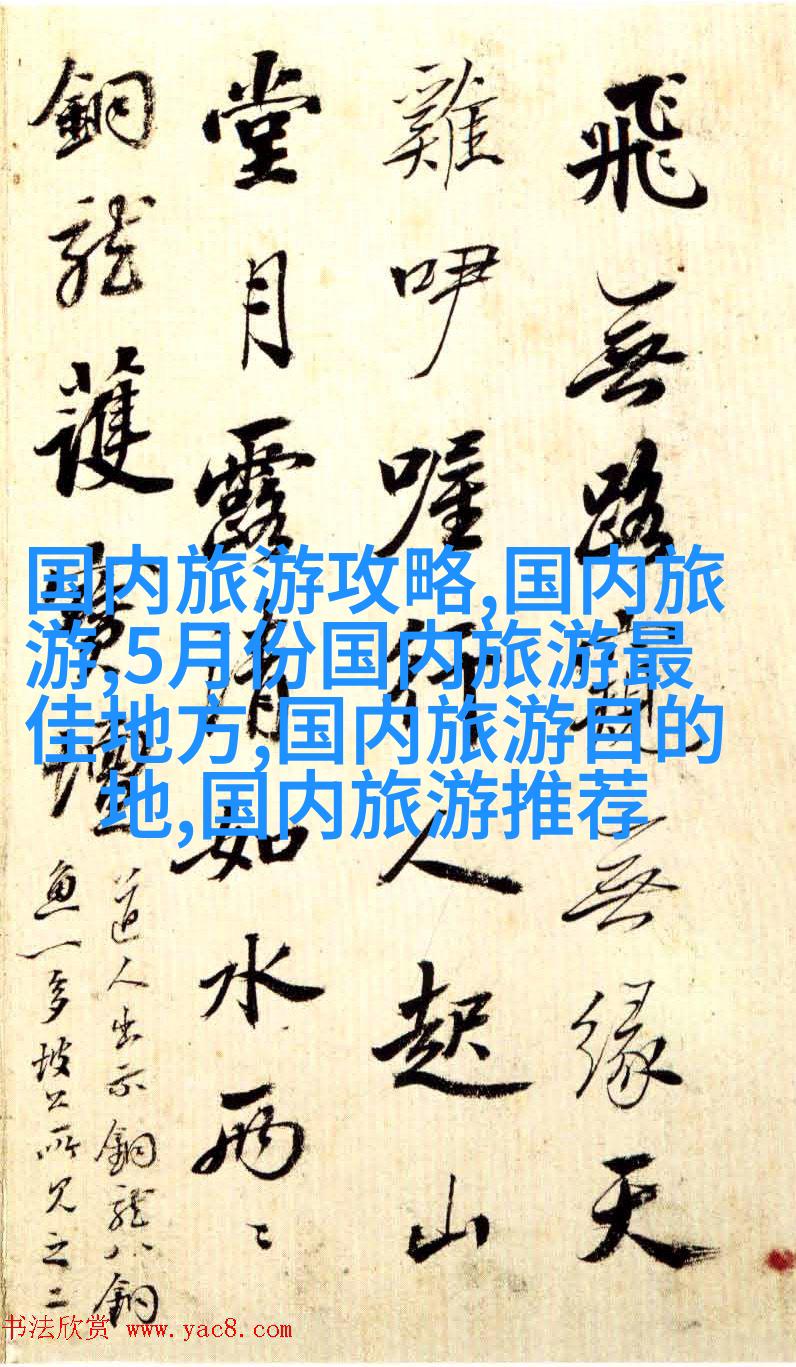 飛無路寬無緣天
雞咿喔行人起山
堂月露清如水兩〻
銅龍護寶壇
道人出示銅龍八銅
魚一多坡公所見之二
国内旅游攻略,国内旅
游,5月份国内旅游最
佳地方,国内旅游目的
地,国内旅游推荐
书法欣赏 www.yac8.com